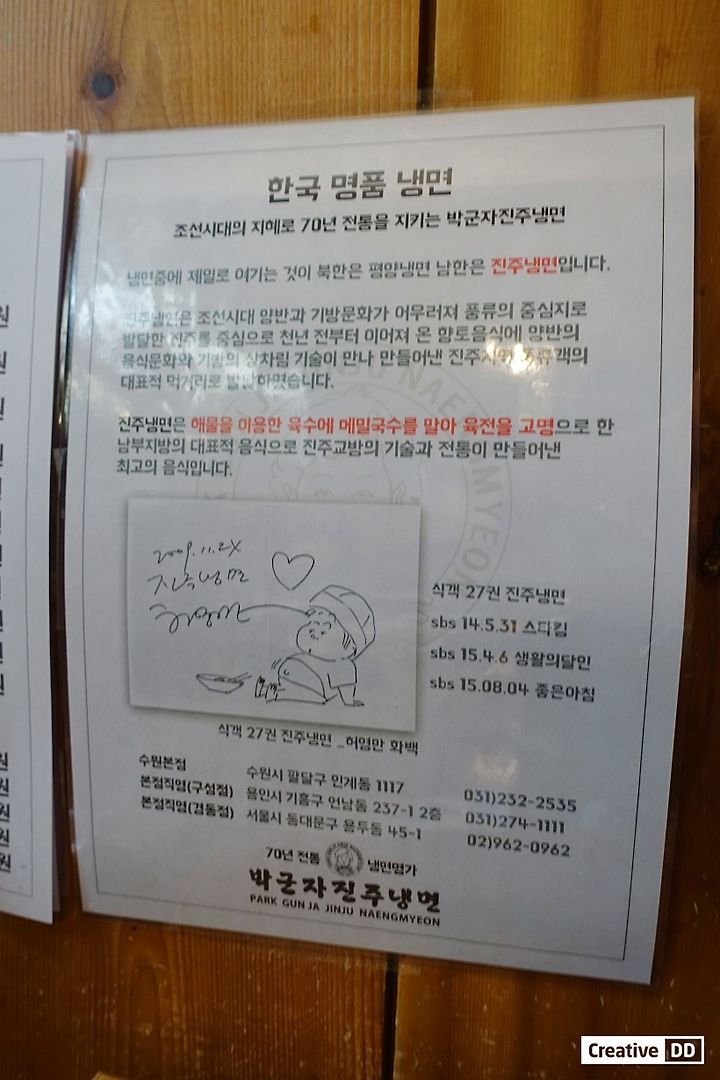 한국 명품 냉면
조선시대의 지혜로 70년 전통을 지키는 박군자진주냉면
냉면중에 제일로 여기는 것이 북한은 평양냉면 남한은 진주냉면입니다.
진주냉면은 조선시대 양반과 기방문화가 어우러져 풍류의 중심지로
발달한 진주를 중심으로 천년 전부터 이어져 온 향토음식에 양반의
음식문화와 기방의 상차림 기술이 만나 만들어낸
대표적 먹거리로 발달하였습니다.
진주냉면은 해물을 이용한 육수에 메밀국수를 말아 육전을 고명으로 한
남부지방의 대표적 음식으로 진주교방의 기술과 전통이 만들어낸
최고의 음식입니다.
진주냉면
식객 27권 진주냉면
sbs 14.5.31 스타킹
sbs 15.4.6 생활의달인
sbs 15.08.04 좋은아침
식객 27권 진주냉면 _허영만 화백
수원본점 수원시 팔달구 인계동 1117 031)232-2535
본점직영(구성점) 용인시 기흥구 언남동 237-1 2층 031)274-1111
본점직영(경동점) 서울시 동대문구 용두동 45-1 02)962-0962
70년 전통 냉면명가
박군자진주냉면
PARK GUN JA JINJU NAENGMYEON
원
원
원
원
원
원
원
원
원
원
Creative DD